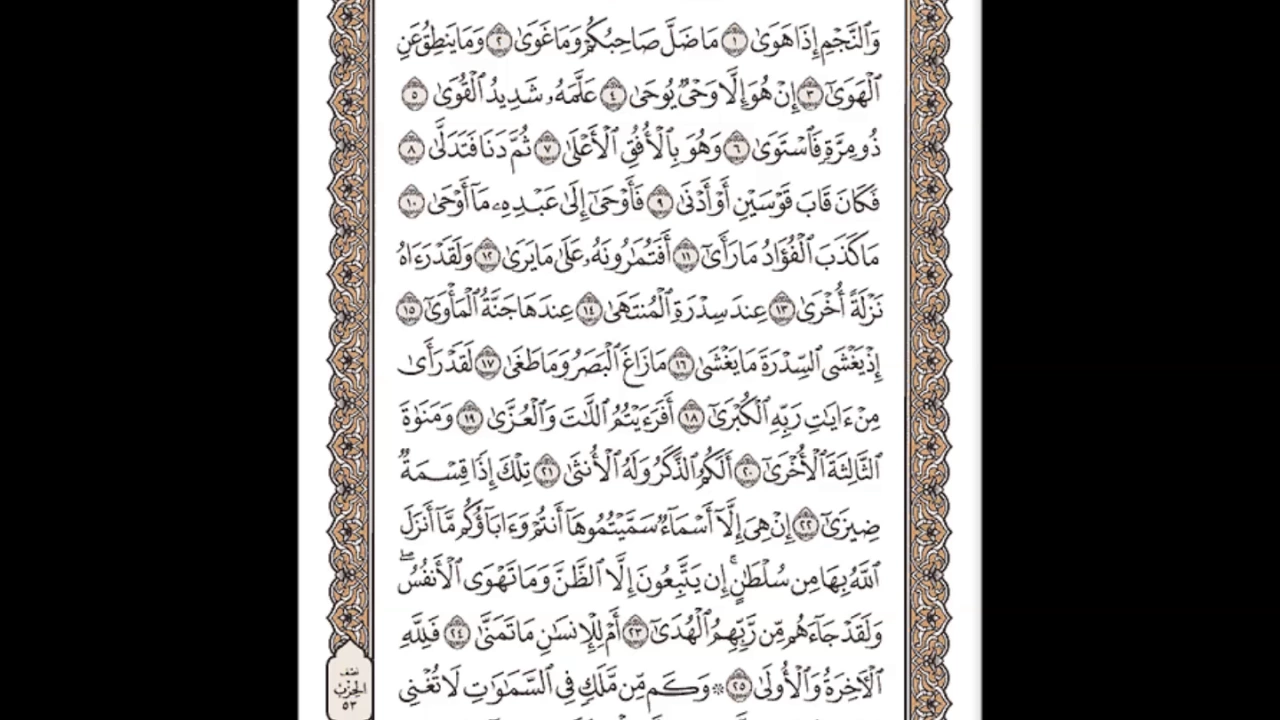 وَٱلنَّجْمِ إِذَا هَوَىٰ ١ مَا ضَلَّ صَاحِبُكُمْ وَمَا غَوَىٰ ٢ وَمَا يَنطِقُ عَنِ
ٱلْهَوَىٰٓ ٣ إِنْ هُوَ إِلَّا وَحْىٌ يُوحَىٰ ٤ عَلَّمَهُۥ شَدِيدُ ٱلْقُوَىٰ ٥
ذُو مِرَّةٍ فَٱسْتَوَىٰ ٦ وَهُوَ بِٱلْأُفُقِ ٱلْأَعْلَىٰ ٧ ثُمَّ دَنَا فَتَدَلَّىٰ ٨
فَكَانَ قَابَ قَوْسَيْنِ أَوْ أَدْنَىٰ ٩ فَأَوْحَىٰٓ إِلَىٰ عَبْدِهِۦ مَآ أَوْحَىٰ ١٠
مَا كَذَبَ ٱلْفُؤَادُ مَا رَأَىٰٓ ١١ أَفَتُمَٰرُونَهُۥ عَلَىٰ مَا يَرَىٰ ١٢ وَلَقَدْ رَءَاهُ
نَزْلَةً أُخْرَىٰ ١٣ عِندَ سِدْرَةِ ٱلْمُنتَهَىٰ ١٤ عِندَهَا جَنَّةُ ٱلْمَأْوَىٰٓ ١٥
إِذْ يَغْشَى ٱلسِّدْرَةَ مَا يَغْشَىٰ ١٦ مَا زَاغَ ٱلْبَصَرُ وَمَا طَغَىٰ ١٧ لَقَدْ رَأَىٰ
مِنْ ءَايَٰتِ رَبِّهِ ٱلْكُبْرَىٰٓ ١٨ أَفَرَءَيْتُمُ ٱللَّٰتَ وَٱلْعُزَّىٰ ١٩ وَمَنَوٰةَ
ٱلثَّالِثَةَ ٱلْأُخْرَىٰٓ ٢٠ أَلَكُمُ ٱلذَّكَرُ وَلَهُ ٱلْأُنثَىٰ ٢١ تِلْكَ إِذًا قِسْمَةٌ
ضِيزَىٰٓ ٢٢ إِنْ هِىَ إِلَّآ أَسْمَآءٌ سَمَّيْتُمُوهَآ أَنتُمْ وَءَابَآؤُكُم مَّآ أَنزَلَ
ٱللَّهُ بِهَا مِن سُلْطَٰنٍ ۚ إِن يَتَّبِعُونَ إِلَّا ٱلظَّنَّ وَمَا تَهْوَى ٱلْأَنفُسُ ۖ
وَلَقَدْ جَآءَهُم مِّن رَّبِّهِمُ ٱلْهُدَىٰٓ ٢٣ أَمْ لِلْإِنسَٰنِ مَا تَمَنَّىٰ ٢٤ فَلِلَّهِ
ٱلْءَاخِرَةُ وَٱلْأُولَىٰ ٢٥ ۞ وَكَم مِّن مَّلَكٍ فِى ٱلسَّمَٰوَٰتِ لَا تُغْنِى
نصف
الحزب
٥٣